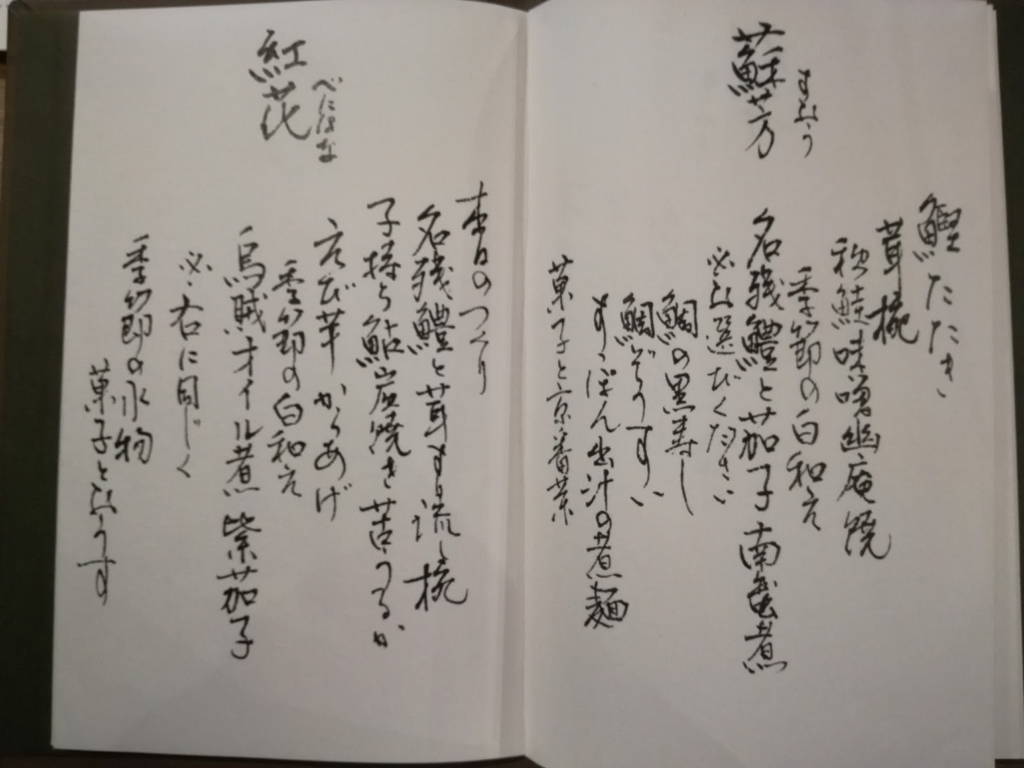 蘇芳
すおう
鰹たたき
茸椀
秋鮭味噌幽庵焼
季節の白和え
名残鱧と茄子南蛮煮
※お選びください
鯛の黒寿し
鯛ぞうすい
すっぽん出汁の煮麺
菓子と京番茶
紅花
べにばな
本日のつくり
名残鱧と茸すり流し椀
子持ち鮎炭焼き苦うるか
えび芋からあげ
季節の白和え
烏賊オイル煮紫茄子
※右に同じく
季節の水物
菓子とおうす